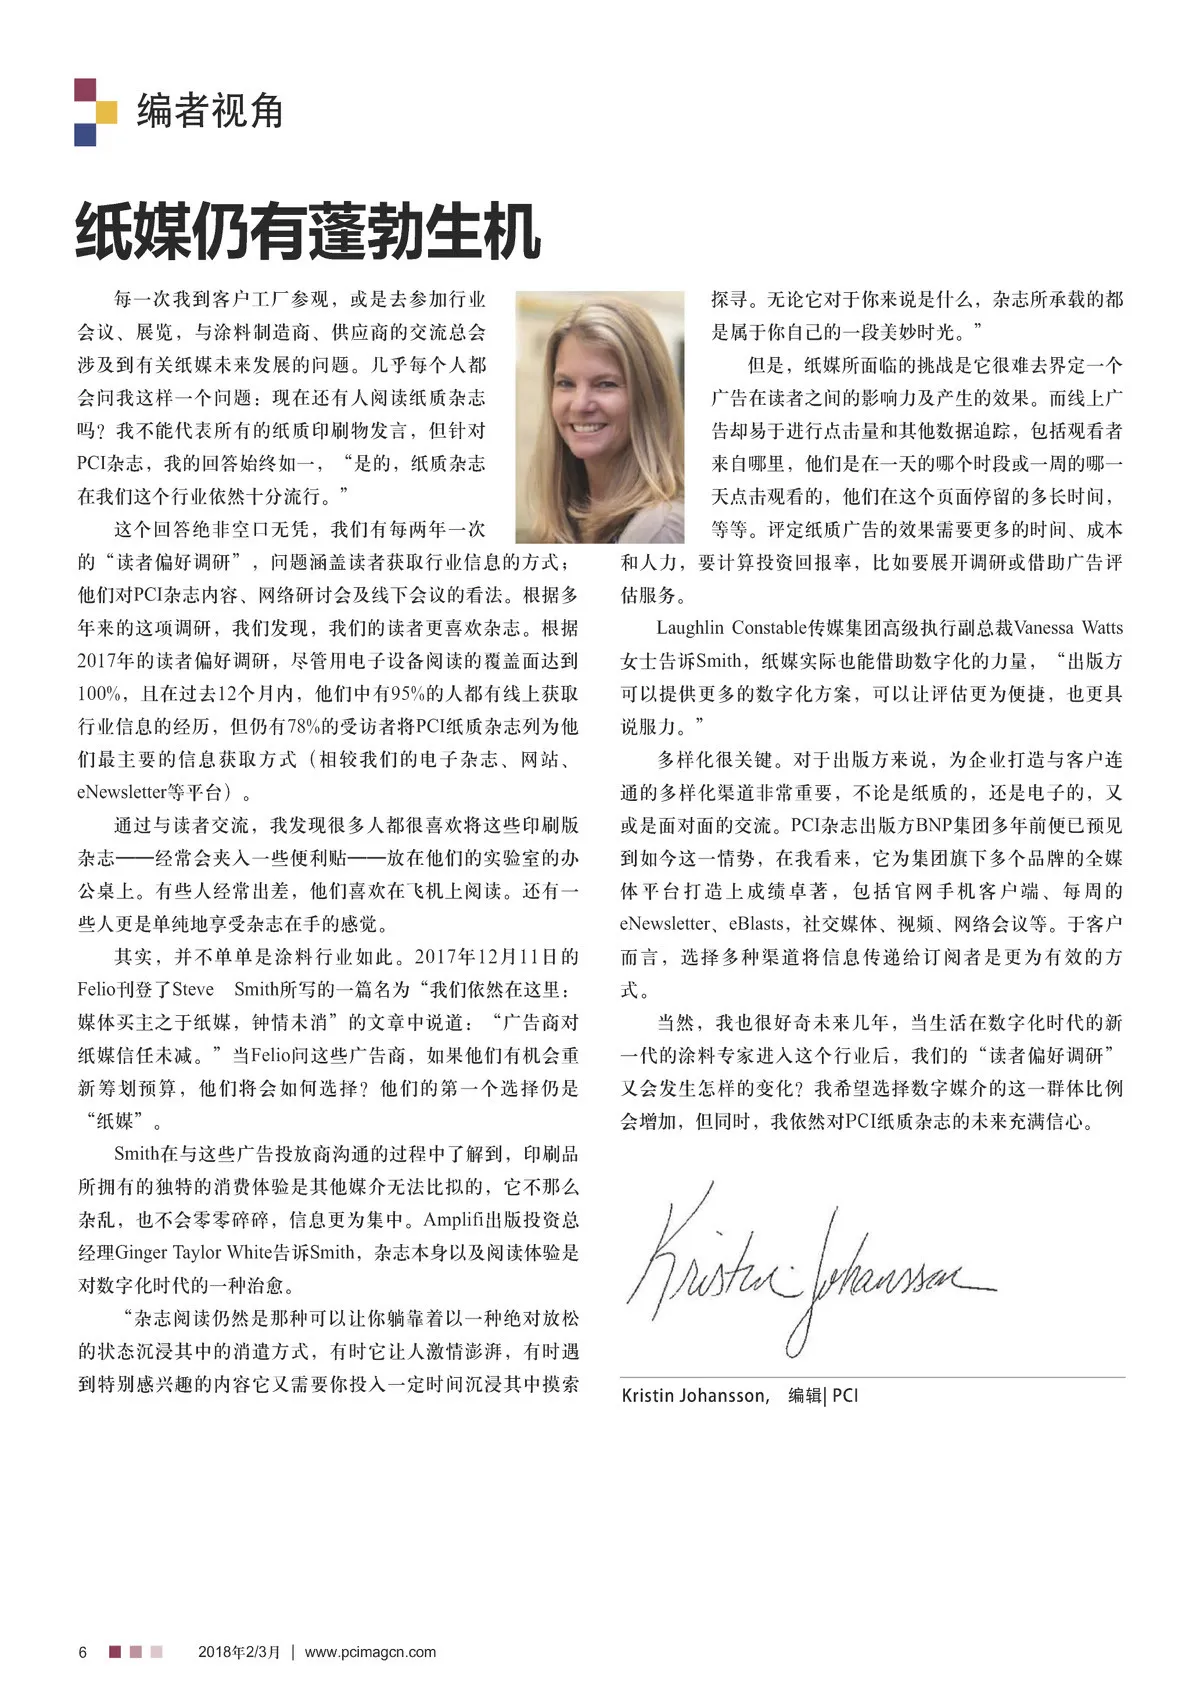 编者视角
纸媒仍有蓬勃生机
每一次我到客户工厂参观，或是去参加行业
会议、展览，与涂料制造商、供应商的交流总会
涉及到有关纸媒未来发展的问题。几乎每个人都
会问我这样一个问题：现在还有人阅读纸质杂志
吗？我不能代表所有的纸质印刷物发言，但针对
PCI杂志，我的回答始终如一，“是的，纸质杂志
在我们这个行业依然十分流行。”
这个回答绝非空口无凭，我们有每两年一次
的“读者偏好调研”，问题涵盖读者获取行业信息的方式；
他们对PCI杂志内容、网络研讨会及线下会议的看法。根据多
年来的这项调研，我们发现，我们的读者更喜欢杂志。根据
2017年的读者偏好调研，尽管用电子设备阅读的覆盖面达到
100%，且在过去12个月内，他们中有95%的人都有线上获取
行业信息的经历，但仍有78%的受访者将PCI纸质杂志列为他
们最主要的信息获取方式（相较我们的电子杂志、网站、
eNewsletter等平台）。
通过与读者交流，我发现很多人都很喜欢将这些印刷版
杂志——经常会夹入一些便利贴——放在他们的实验室的办
公桌上。有些人经常出差，他们喜欢在飞机上阅读。还有一
些人更是单纯地享受杂志在手的感觉。
其实，并不单单是涂料行业如此。2017年12月11日的
Felio刊登了Steve Smith所写的一篇名为“我们依然在这里：
媒体买主之于纸媒，钟情未消”的文章中说道：“广告商对
纸媒信任未减。”当Felio问这些广告商，如果他们有机会重
新筹划预算，他们将会如何选择？他们的第一个选择仍是
“纸媒”。
Smith在与这些广告投放商沟通的过程中了解到，印刷品
所拥有的独特的消费体验是其他媒介无法比拟的，它不那么
杂乱，也不会零零碎碎，信息更为集中。Amplifi出版投资总
经理Ginger Taylor White告诉Smith，杂志本身以及阅读体验是
对数字化时代的一种治愈。
“杂志阅读仍然是那种可以让你躺靠着以一种绝对放松
的状态沉浸其中的消遣方式，有时它让人激情澎湃，有时遇
到特别感兴趣的内容它又需要你投入一定时间沉浸其中摸索
探寻。无论它对于你来说是什么，杂志所承载的都
是属于你自己的一段美妙时光。”
但是，纸媒所面临的挑战是它很难去界定一个
广告在读者之间的影响力及产生的效果。而线上广
告却易于进行点击量和其他数据追踪，包括观看者
来自哪里，他们是在一天的哪个时段或一周的哪一
天点击观看的，他们在这个页面停留的多长时间，
等等。评定纸质广告的效果需要更多的时间、成本
和人力，要计算投资回报率，比如要展开调研或借助广告评
估服务。
Laughlin Constable传媒集团高级执行副总裁Vanessa Watts
女士告诉Smith，纸媒实际也能借助数字化的力量，“出版方
可以提供更多的数字化方案，可以让评估更为便捷，也更具
说服力。”
多样化很关键。对于出版方来说，为企业打造与客户连
通的多样化渠道非常重要，不论是纸质的，还是电子的，又
或是面对面的交流。PCI杂志出版方BNP集团多年前便已预见
到如今这一情势，在我看来，它为集团旗下多个品牌的全媒
体平台打造上成绩卓著，包括官网手机客户端、每周的
eNewsletter、eBlasts，社交媒体、视频、网络会议等。于客户
而言，选择多种渠道将信息传递给订阅者是更为有效的方
式。
当然，我也很好奇未来几年，当生活在数字化时代的新
一代的涂料专家进入这个行业后，我们的“读者偏好调研”
又会发生怎样的变化？我希望选择数字媒介的这一群体比例
会增加，但同时，我依然对PCI纸质杂志的未来充满信心。
Kristin Johansson
Kristin Johansson, 编辑| PCI
6 2018年2/3月 | www.pcimagcn.com